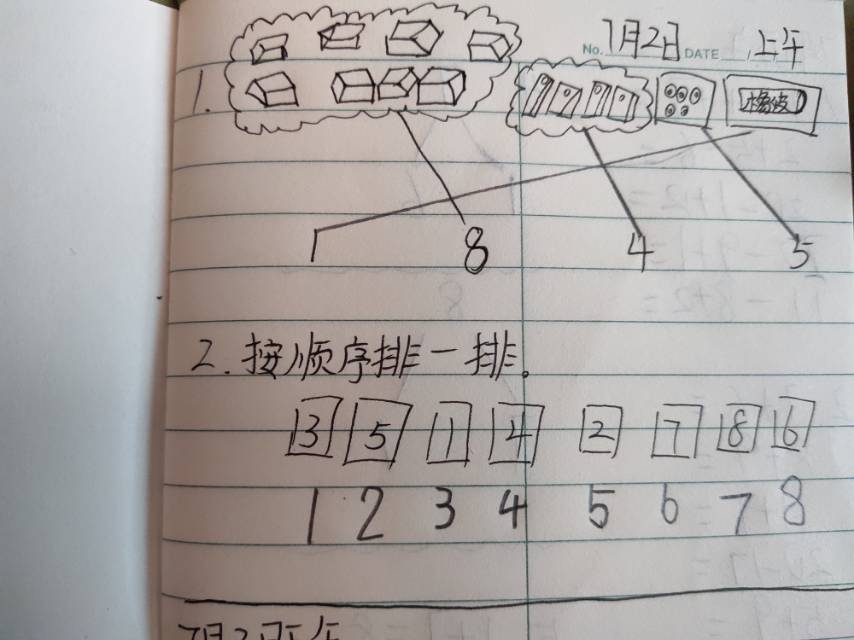 No. 7月2日 DATE 上午
1.
橡皮
1 8 4 5
2. 按顺序排一排。
3 5 1 4 2 7 8 6
1 2 3 4 5 6 7 8
7月2日下午